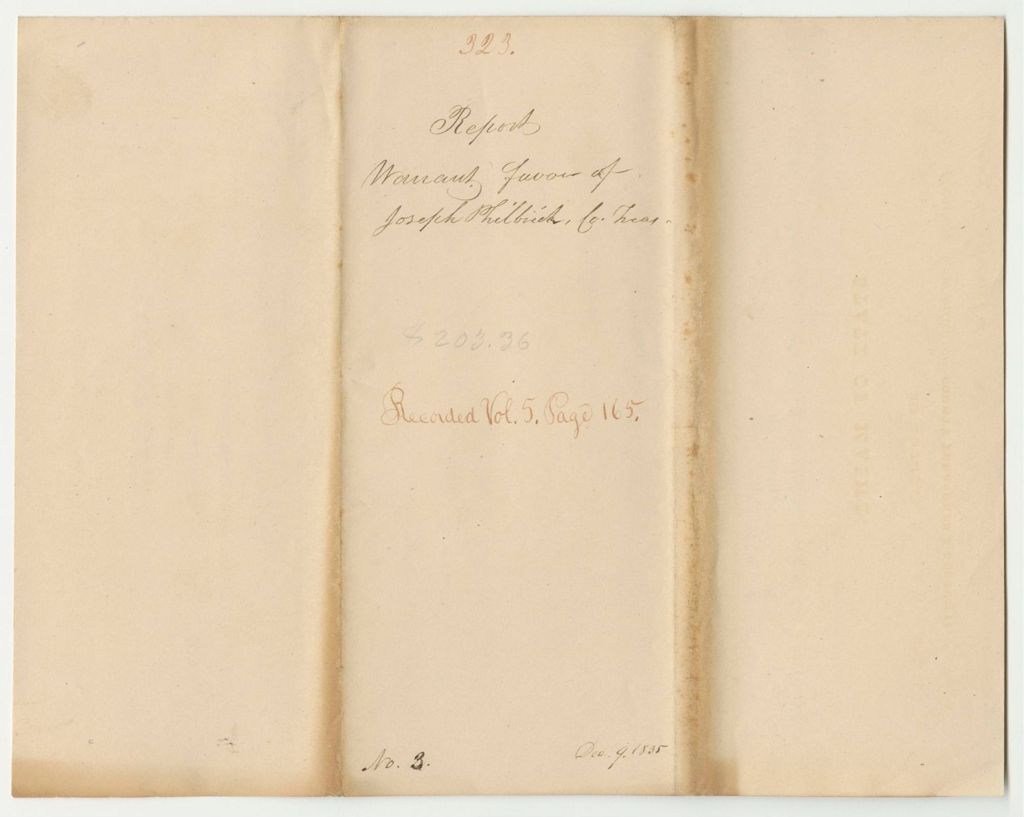 323.
Report
Warrant favor of
Joseph Philbrick, Co. Treas.
$ 203.36
Recorded Vol. 5. Page 165.
No. 3.
Dec. 9. 1835
STATE OF MAINE